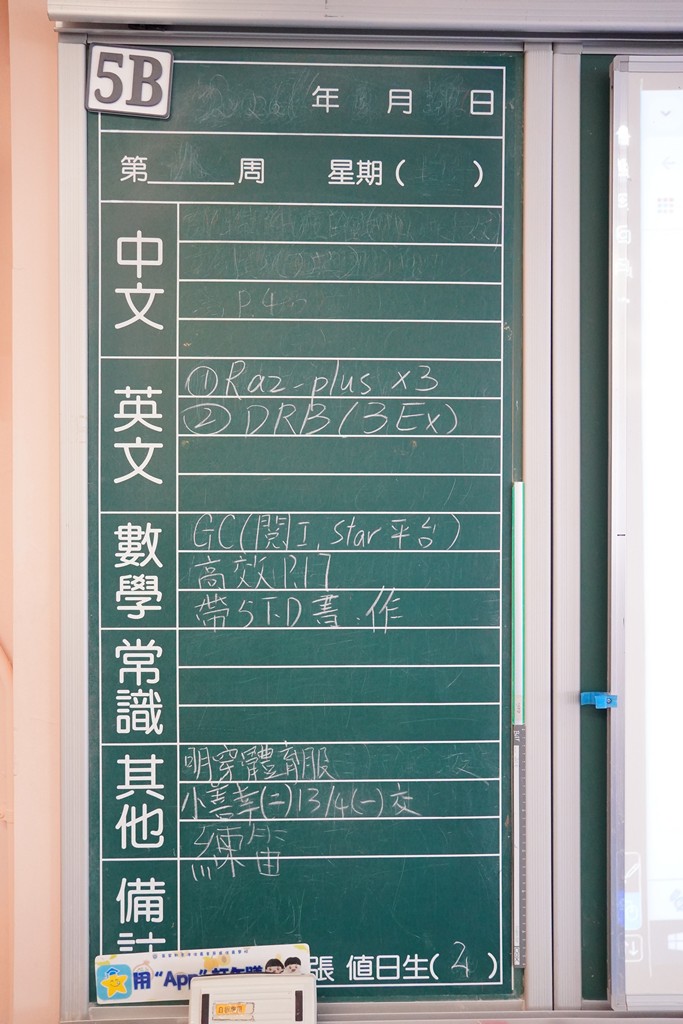 5B
年 月 日
第 周 星期( )
中文
P.4
英文
①Raz-plus x3
②DRB(3Ex)
數學
GC(閱I, star平台)
高效P.17
帶5下D書.作
常識
其他
明穿體育服 交
小善幸(二)13/4(一)交
練笛
備註
用“App”
張 值日生(2)